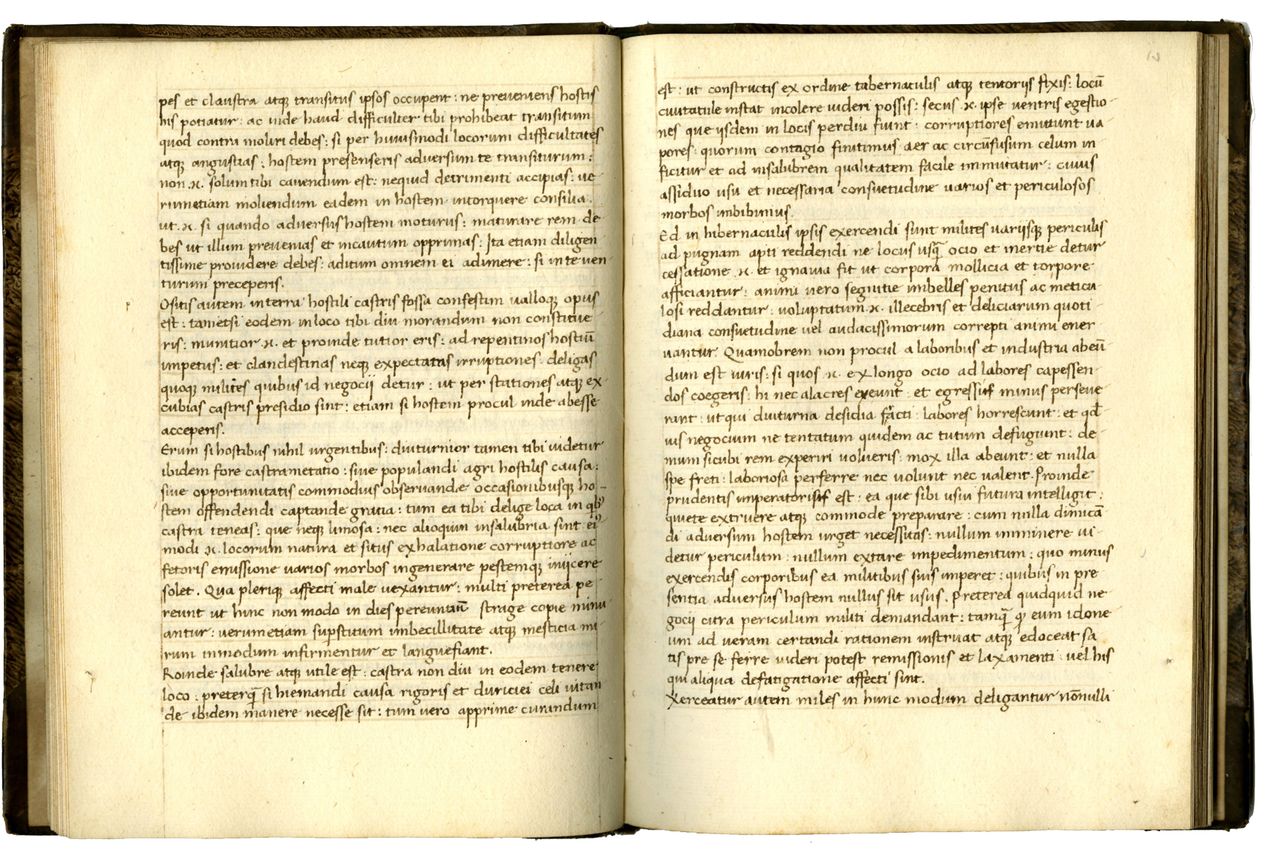 pes et claustra atq; transitus ipsos occupent: ne preveniens hostis
his potiatur: ac inde haud difficulter tibi prohibeat transitum
quod contra moliri debes: si per huiusmodi locorum difficultates
atq; angustias: hostem presenseris adversum te transiturum:
non .n. solum tibi cavendum est: nequid detrimenti accipias: ve
rumetiam moliendum eadem in hostem intorquere consilia.
ut .n. si quando adversus hostem moturus: maturare rem de-
bes ut illum prevenias et incautum opprimas: Ita etiam diligen
tissime providere debes: aditum omnem ei adimere: si in te ven-
turum preceperis.
Ositis autem interra hostili castris fossa confestim valloq; opus
est: tametsi eodem in loco tibi diu morandum non constitue-
ris: munitior .n. et proinde tutior eris: ad repentinos hostiū
impetus: et clandestinas neq; expectatas irruptiones: deligas
quoq; milites quibus id negocij detur: ut per stationes atq; ex-
cubias castris presidio sint: etiam si hostem procul inde abesse
acceperis.
Erum si hostibus nihil urgentibus: diuturnior tamen tibi videtur
ibidem fore castrametatio: sive populandi agri hostilis causa:
sive opportunitatis commodius observandæ occasionibusq; ho-
stem offendendi captande gratia: tum ea tibi delige loca in qb9
castra teneas: que neq; limosa: nec alioquin insalubria sint: ei9
modi .n. locorum natura et situs exhalatione corruptiore ac
fetoris emissione varios morbos ingenerare pestemq; inijcere
solet. Qua pleriq; affecti male vexantur: multi preterea pe-
reunt ut hunc non modo in dies pereuntiū strage copie minu-
antur: verumetiam supstitum imbecillitate atq; mesticia mi-
rum immodum infirmentur et languefiant.
Roinde salubre atq; utile est: castra non diu in eodem tenere
loco: preterq̄ si hiemandi causa rigoris et duriciei celi vitan-
de ibidem manere necesse sit: tum vero apprime curandum
10
est: ut constructis ex ordine tabernaculis atq; tentorijs fixis: locū
civitatule instat incolere videri possis: secus .n. ipse ventris egestio-
nes que ijsdem in locis perdiu fiunt: corruptiores emittunt va-
pores: quorum contagio finitimus aer ac circūfusum celum in-
ficitur et ad insalubrem qualitatem facile immutatur: cuius
assiduo usu et necessaria consuetudine varios et periculosos
morbos imbibimus.
Ed in hibernaculis ipsis exercendi sunt milites varijsq; periculis
ad pugnam apti reddendi ne locus usq̄ ocio et inertie detur
cessatione .n. et ignavia fit ut corpora mollicia et torpore
afficiantur: animi vero segnitie imbelles penitus ac meticu-
losi reddantur: voluptatum .n. illecebris et deliciarum quoti-
diana consuetudine vel audacissimorum correpti animi ener-
vantur. Quamobrem non procul a laboribus et industria abeū
dum est viris: si quos .n. ex longo ocio ad labores capessen-
dos coegeris: hi nec alacres exeunt: et egressi minus perseve-
rant: ut qui diuturna desidia facti: labores horrescunt: et qd
vis negocium ne tentatum quidem ac tutum defugiunt: de-
mum sicubi rem experiri volueris: mox illa abeunt: et nulla
spe freti: laboriosa perferre nec volunt nec valent. Proinde
prudentis imperatoris est: ea que sibi usui futura intelligit:
quiete extruere atq; commode preparare: cum nulla dimicā-
di adversum hostem urget necessitas: nullum imminere vi-
detur periculum: nullum extare impedimentum: quo minus
exercendis corporibus ea militibus suis imperet: quibus in pre-
sentia adversus hostem nullus sit usus. Preterea quidquid ne-
gocij citra periculum militi demandant: tamq̄ qd eum idone-
um ad veram certandi rationem instruat atq; edoceat sa-
tis pre se ferre videri potest remissionis et laxamenti: vel his
qui aliqua defatigatione affecti sint.
Xerceatur autem miles in hunc modum deligantur nōnulli